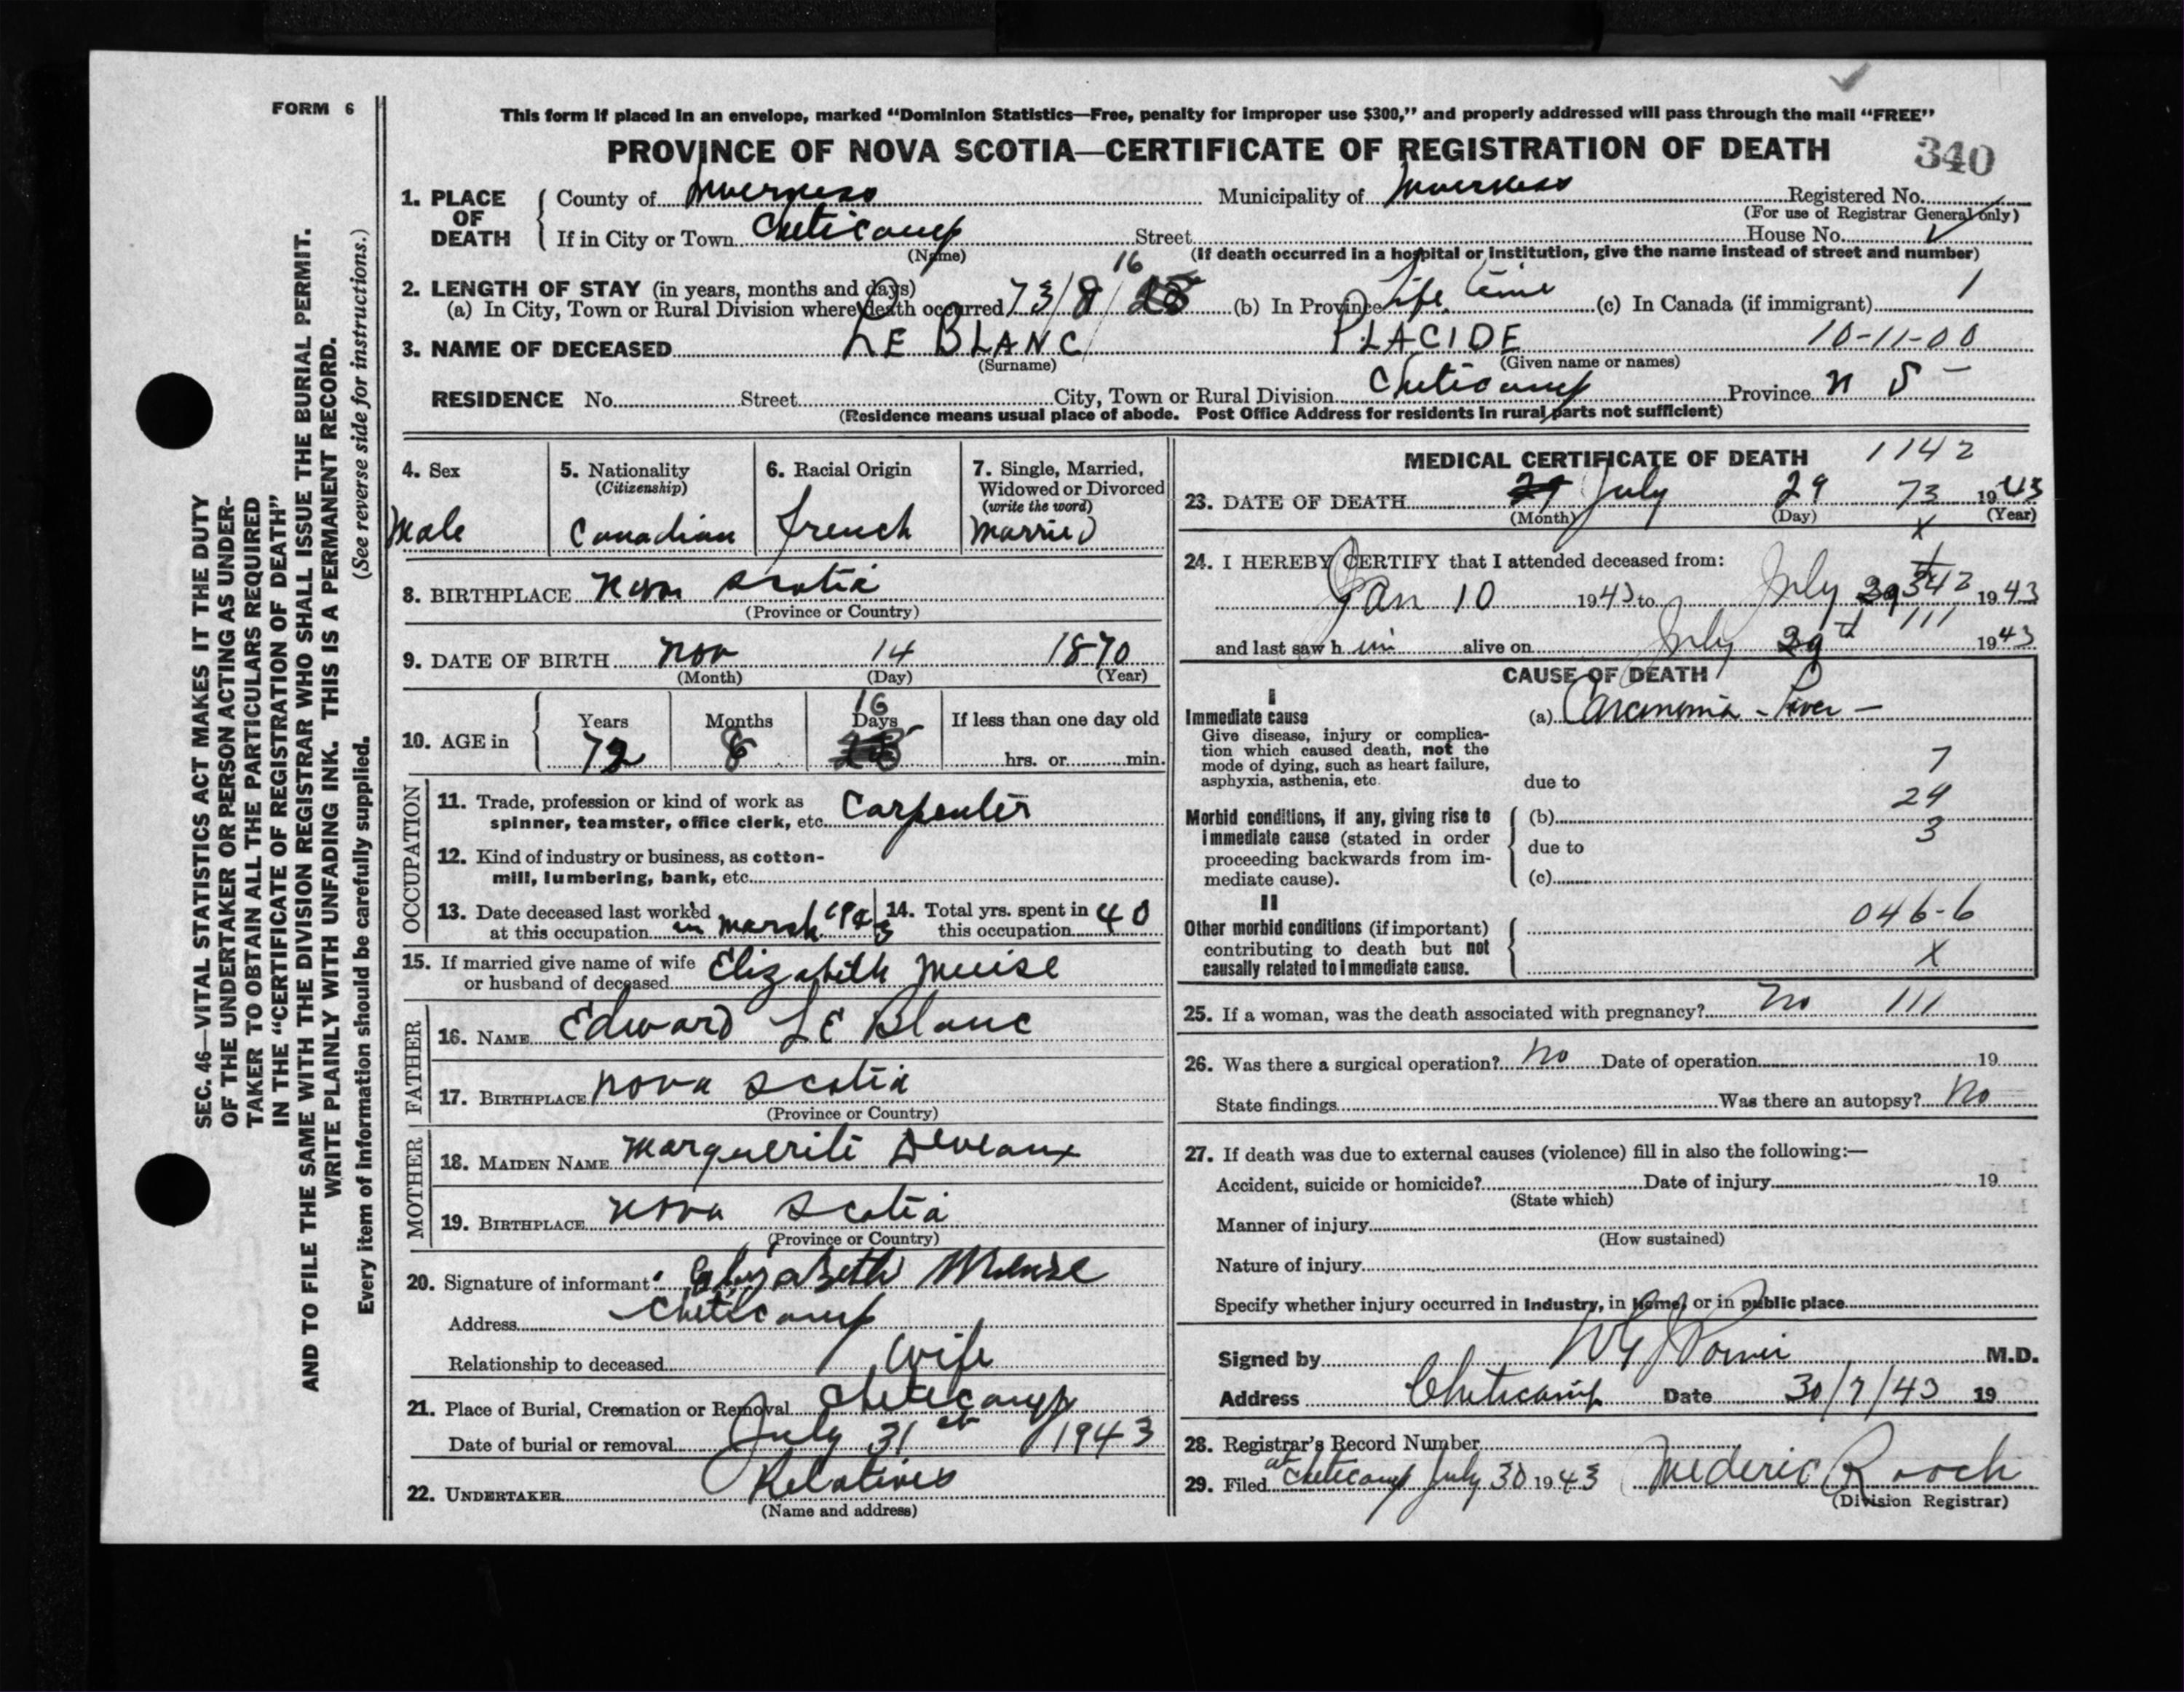 FORM 6
This form if placed in an envelope, marked “Dominion Statistics—Free, penalty for improper use $300,” and properly addressed will pass through the mail “FREE”
PROVINCE OF NOVA SCOTIA—CERTIFICATE OF REGISTRATION OF DEATH
340
1. PLACE OF DEATH
County of Inverness Municipality of Inverness Registered No.
(For use of Registrar General only)
If in City or Town Cheticamp Street House No.
(Name) (If death occurred in a hospital or institution, give the name instead of street and number)
2. LENGTH OF STAY (in years, months and days) 16
(a) In City, Town or Rural Division where death occurred 73/8/ (b) In Province Life time (c) In Canada (if immigrant) 1
3. NAME OF DECEASED LE BLANC PLACIDE 10-11-00
(Surname) (Given name or names)
RESIDENCE No. Street City, Town or Rural Division Cheticamp Province N S
(Residence means usual place of abode. Post Office Address for residents in rural parts not sufficient)
4. Sex
Male
5. Nationality
(Citizenship)
Canadian
6. Racial Origin
French
7. Single, Married,
Widowed or Divorced
(write the word)
Married
8. BIRTHPLACE Nova Scotia
(Province or Country)
9. DATE OF BIRTH Nov 14 1870
(Month) (Day) (Year)
10. AGE in
Years Months Days If less than one day old
72 8 16 hrs. or min.
OCCUPATION
11. Trade, profession or kind of work as
spinner, teamster, office clerk, etc. Carpenter
12. Kind of industry or business, as cotton-
mill, lumbering, bank, etc.
13. Date deceased last worked
at this occupation in March 1943
14. Total yrs. spent in
this occupation 40
15. If married give name of wife
or husband of deceased Elizabeth Muise
FATHER
16. NAME Edward LE Blanc
17. BIRTHPLACE Nova Scotia
(Province or Country)
MOTHER
18. MAIDEN NAME Marguerite Deveaux
19. BIRTHPLACE Nova Scotia
(Province or Country)
20. Signature of informant Elizabeth Meuse
Address Cheticamp
Relationship to deceased Wife
21. Place of Burial, Cremation or Removal Cheticamp
Date of burial or removal July 31st 1943
22. UNDERTAKER Relatives
(Name and address)
MEDICAL CERTIFICATE OF DEATH 1142
23. DATE OF DEATH July 29 73 1943
(Month) (Day) (Year)
X
24. I HEREBY CERTIFY that I attended deceased from:
Jan 10 1943 to July 29 342 1943
and last saw him alive on July 29th 111 1943
CAUSE OF DEATH
I
Immediate cause
Give disease, injury or complica-
tion which caused death, not the
mode of dying, such as heart failure,
asphyxia, asthenia, etc.
(a) Carcinoma - Liver -
7
due to
24
Morbid conditions, if any, giving rise to
immediate cause (stated in order
proceeding backwards from im-
mediate cause).
(b)
3
due to
(c)
II
Other morbid conditions (if important)
contributing to death but not
causally related to immediate cause.
046-6
X
25. If a woman, was the death associated with pregnancy? No 111
26. Was there a surgical operation? No Date of operation 19
State findings Was there an autopsy? No
27. If death was due to external causes (violence) fill in also the following:—
Accident, suicide or homicide? Date of injury 19
(State which)
Manner of injury
(How sustained)
Nature of injury
Specify whether injury occurred in Industry, in Home, or in public place
Signed by M.D.
Address Cheticamp Date 30/7/43 19
28. Registrar's Record Number
29. Filed at Cheticamp July 30 1943 Mederic Roach
(Division Registrar)
SEC. 46—VITAL STATISTICS ACT MAKES IT THE DUTY
OF THE UNDERTAKER OR PERSON ACTING AS UNDER-
TAKER TO OBTAIN ALL THE PARTICULARS REQUIRED
IN THE “CERTIFICATE OF REGISTRATION OF DEATH”
AND TO FILE THE SAME WITH THE DIVISION REGISTRAR WHO SHALL ISSUE THE BURIAL PERMIT.
WRITE PLAINLY WITH UNFADING INK. THIS IS A PERMANENT RECORD.
Every item of information should be carefully supplied. (See reverse side for instructions.)